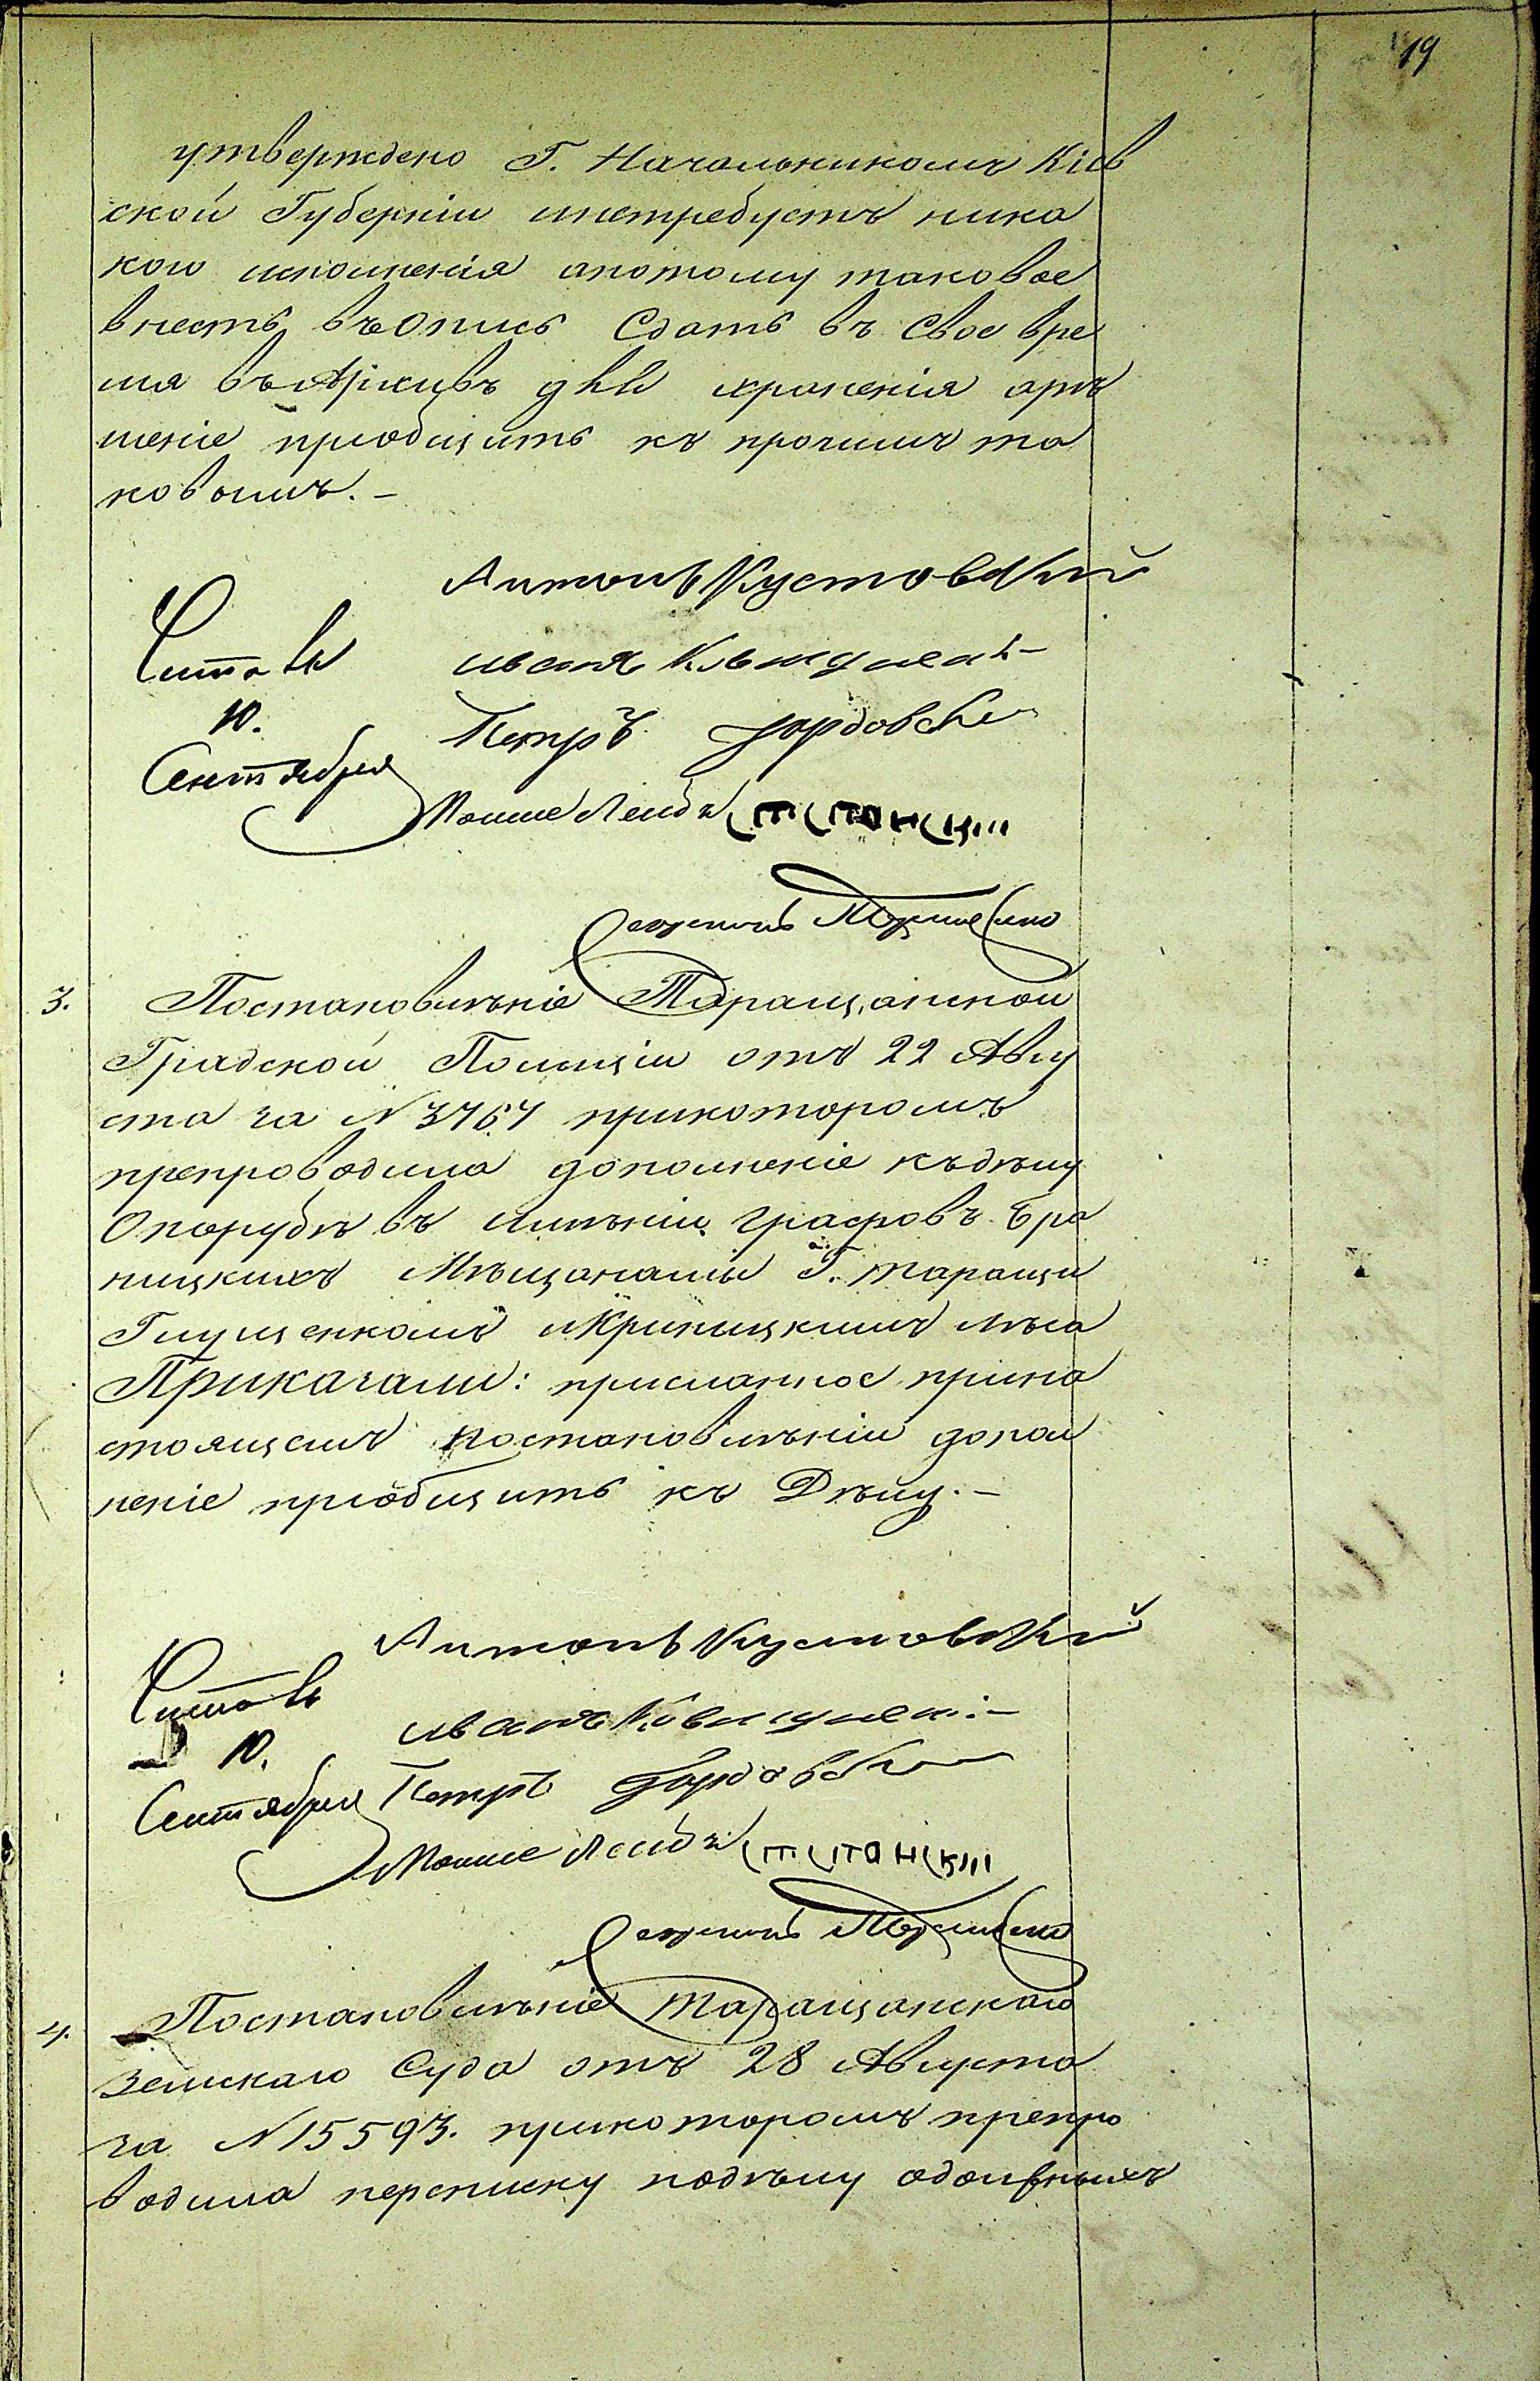 19
утверждено Г. Начальникомъ Кіев
ской Губерніи инетребуетъ ника
кого исполненія апотому таковое
внесть въ опись Сдать въ Свое вре
мя въ Архивъ для храненія арѣ
шеніе пріобщить къ прочимъ та
ковымъ. –
Антонъ Кустовскій
Читалъ
иванъ
10.
Петръ
Сентября
Мошке Лейбъ
3.
Постановлѣніе Таращанской
Градской Полиціи отъ 22 Авгу
ста за № 3767 прикоторомъ
препроводила дополненіе къдѣлу
Опорубкѣ въ имѣніи графовъ Бра
ницкихъ Мѣщанами Г. таращи
Глущенкомъ иКриницкимъ лѣса
Приказали: присланное прина
стоящемъ постановлѣніи допол
неніе пріобщить къ Дѣлу. –
Антонъ Кустовскій
Читалъ
иванъ
10.
Петръ
Сентября
Мошке Лейбъ
4.
Постановлѣніе таращанскаго
Земскаго Суда отъ 28 Августа
за № 15593. прикоторомъ препро
водила переписку подѣлу